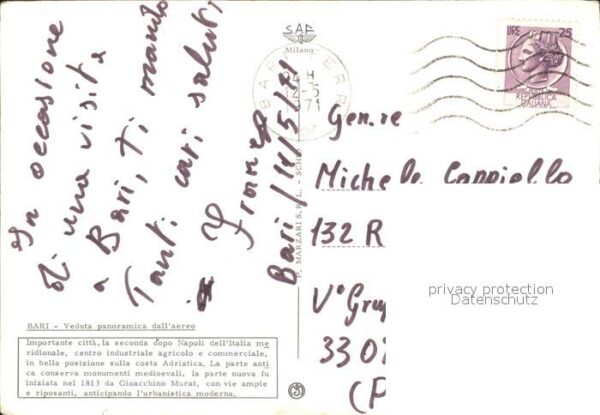 In occasione
di una visita
a Bari, ti mando
Tanti cari saluti
Franz
Bari/11/5/71
SAF
Milano
BARI FERR
LIRE 25
REPUBBLICA
ITALIANA
P. MARZARI S.R.L. - SCHIO
Gen.re
Michele Cappiello
132 R
V° Gru
330
(P
privacy protection
Datenschutz
BARI - Veduta panoramica dall'aereo
Importante città, la seconda dopo Napoli dell'Italia me
ridionale, centro industriale agricolo e commerciale,
in bella posizione sulla costa Adriatica. La parte anti
ca conserva monumenti medioevali, la parte nuova fu
iniziata nel 1813 da Gioacchino Murat, con vie ampie
e riposanti, anticipando l'urbanistica moderna.